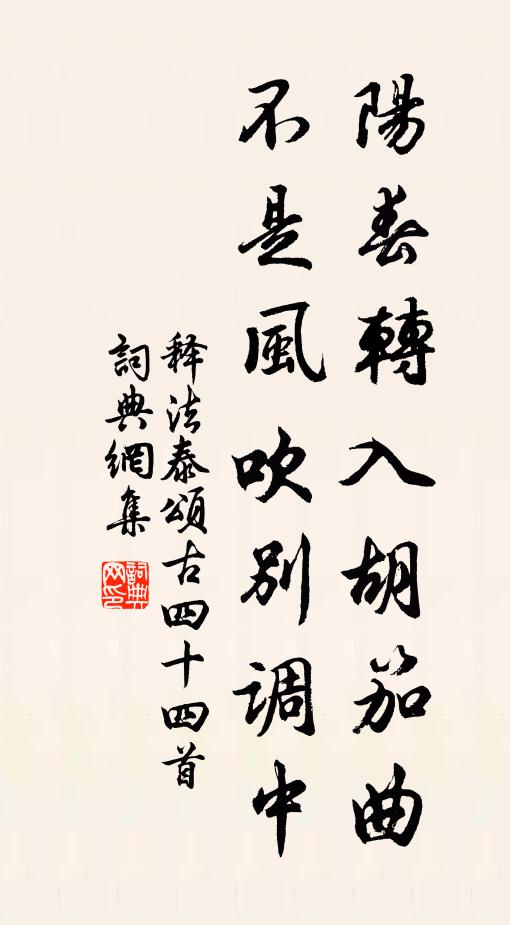 陽春轉入胡笳曲
不是風吹別調中
释法泰頌古四十四首
詞典網集
詞典网印